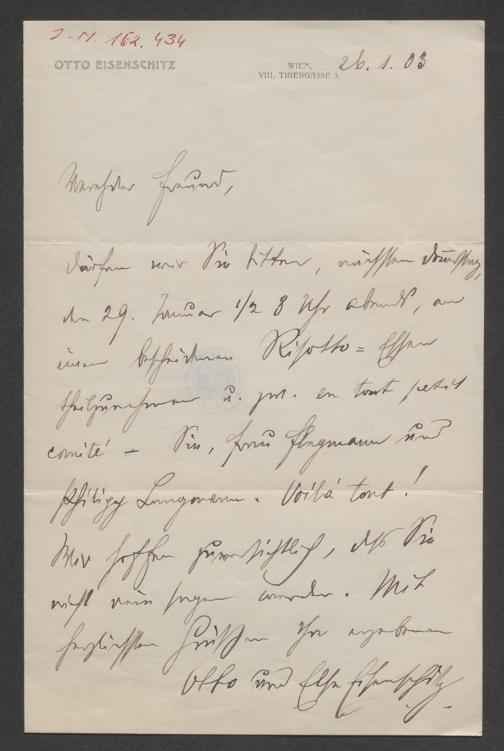 J. N. 162.434
OTTO EISENSCHITZ
WIEN, 26.1.03
VIII. TIGERGASSE
Verehrter Freund,
dürfen wir Sie bitten, nächsten Donnerstag,
den 29. Januar 1/2 8 Uhr abends, an
einem bescheidenen Risotto=Essen
theilzunehmen u. zw. en tout petit
comité – Sie, Frau und
Philipp Langmann. Voilà tout!
Wir hoffen zuversichtlich, daß Sie
nicht nein sagen werden. Mit
herzlichsten Grüßen Ihre ergebenen
Otto und Else Eisenschitz